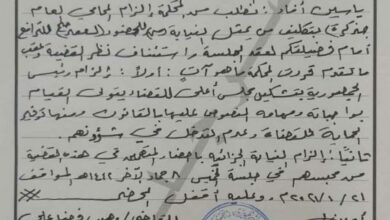 ياسين أفاد: نطلب من المحكمة إلزام المحامي العام
بتكليف من يمثل النيابة للحضور للترافع
أمام فضيلتكم لعقد الجلسة واستئناف نظر القضية
ما تقدم قررت المحكمة ما هو آت: أولاً: إلزام رئيس
الجمهورية بتشكيل مجلس أعلى للقضاء يتولى القيام
بواجباته ومهامه المنصوص عليها بالقانون ومنها توفير
الحماية للقضاة وعدم التدخل في شؤونهم.
ثانياً: إلزام النيابة الجزائية بإحضار المتهمين في هذه القضية
من محبسهم في جلسة الخميس ٨ جماد آخر ١٤٤٢هـ الموافق
٢٠٢١/١/٢١م وعليه أقفل المحضر